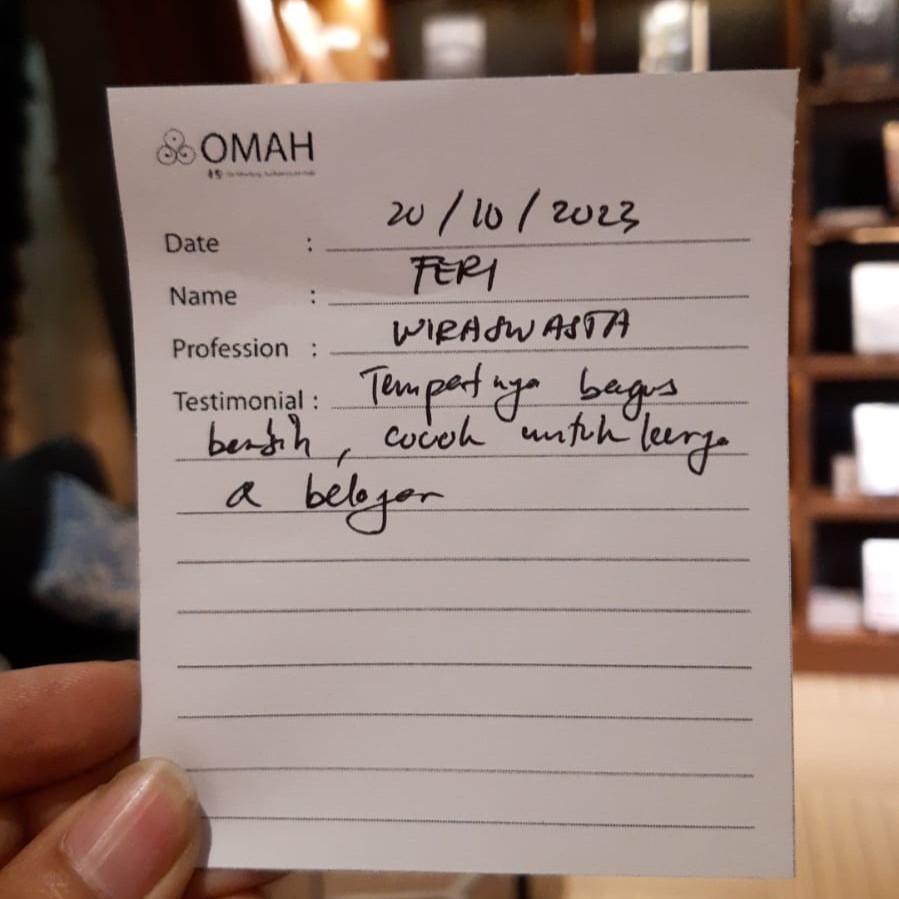 OMAH
Date : 20/10/2023
Name : FERI
Profession : WIRASWASTA
Testimonial : Tempatnya bagus
bersih, cocok untuk kerja
& belajar